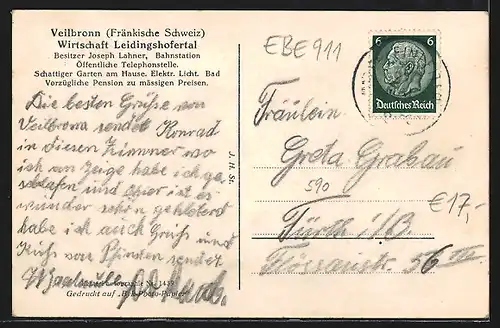 Veilbronn (Fränkische Schweiz)
Wirtschaft Leidingshofertal
Besitzer Joseph Lahner, Bahnstation
Öffentliche Telephonstelle.
Schattiger Garten am Hause. Elektr. Licht. Bad
Vorzügliche Pension zu mässigen Preisen.
Die besten Grüße von
Veilbronn sendet Konrad
in diesen Zimmer wo
ich am Zeige habe ich ge
schlafen und hier ist es
wunder schön
habe ich auch Gruß und
Kuß von Pfinsten sendet
Gedruckt auf
J. H. St.
EBE 911
6
6
Deutsches Reich
Fräulein
Greta Grabau
590
€17,-
Fürth i/B.
56 III